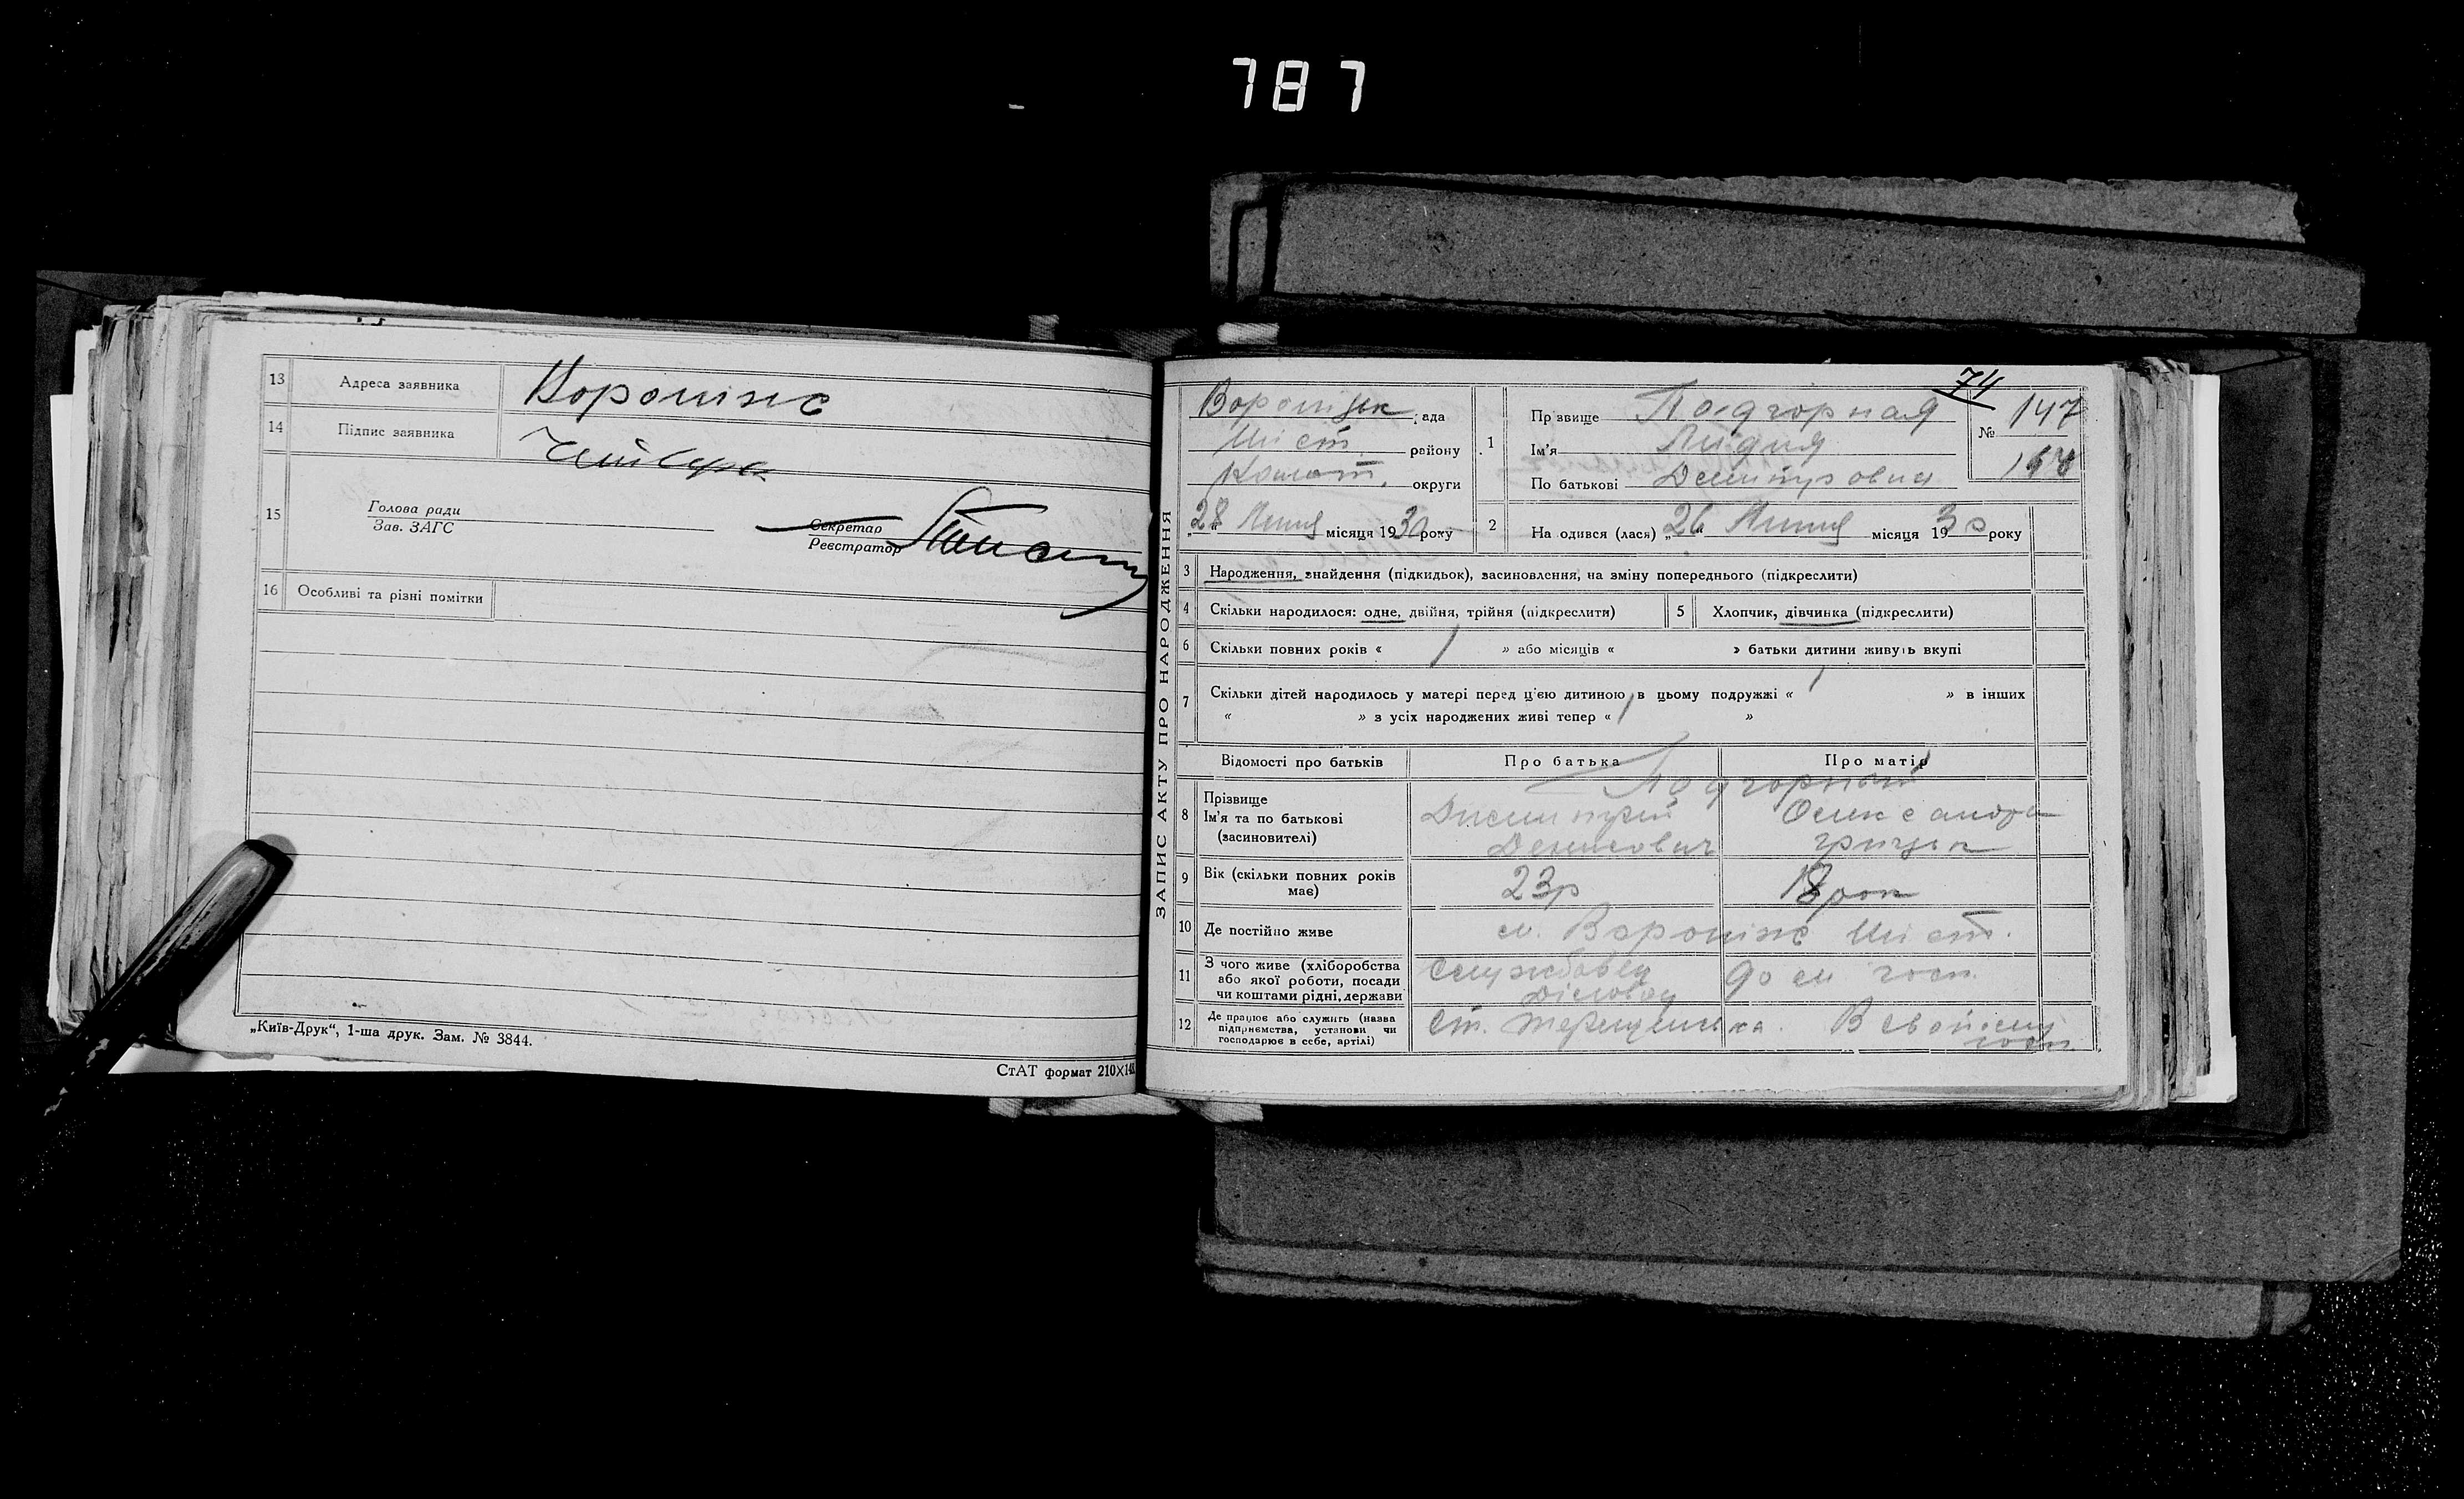 787
13 Адреса заявника Вороніже
14 Підпис заявника
15 Голова ради
Зав. ЗАГС
Секретар
Реєстратор
16 Особливі та різні помітки
„Київ-Друк“, 1-ша друк. Зам. № 3844.
СтАТ формат 210X148
74
ЗАПИС АКТУ ПРО НАРОДЖЕННЯ
Вороніжськ рада
Шіст. району
Коното. округи
28 Липня місяця 1930 року
1 Прізвище Подгорная
Ім’я Лидия
По батькові Демитровна
№ 147
2 На одився (лася) „26“ Липня місяця 1930 року
3 Народження, знайдення (підкидьок), засиновлення, на зміну попереднього (підкреслити)
4 Скільки народилося: одне, двійня, трійня (підкреслити)
5 Хлопчик, дівчинка (підкреслити)
6 Скільки повних років « / » або місяців « » батьки дитини живуть вкупі
7 Скільки дітей народилось у матері перед ц’єю дитиною в цьому подружжі « » в інших
« » з усіх народжених живі тепер « »
Відомості про батьків Про батька Про матір
8 Прізвище
Ім’я та по батькові
(засновителі)
Подгорный
Дисмитрий Олександра
Денисович Грицьк
9 Вік (скільки повних років має) 23р 18 рок
10 Де постійно живе м. Вороніже Шіст.
11 З чого живе (хліборобства
або якої роботи, посади
чи коштами рідні, держави
Службовец дом госп.
12 Де працює або служить (назва
підприємства, установи чи
господарює в себе, артілі)
ст. Терещенська. В своьому
госп